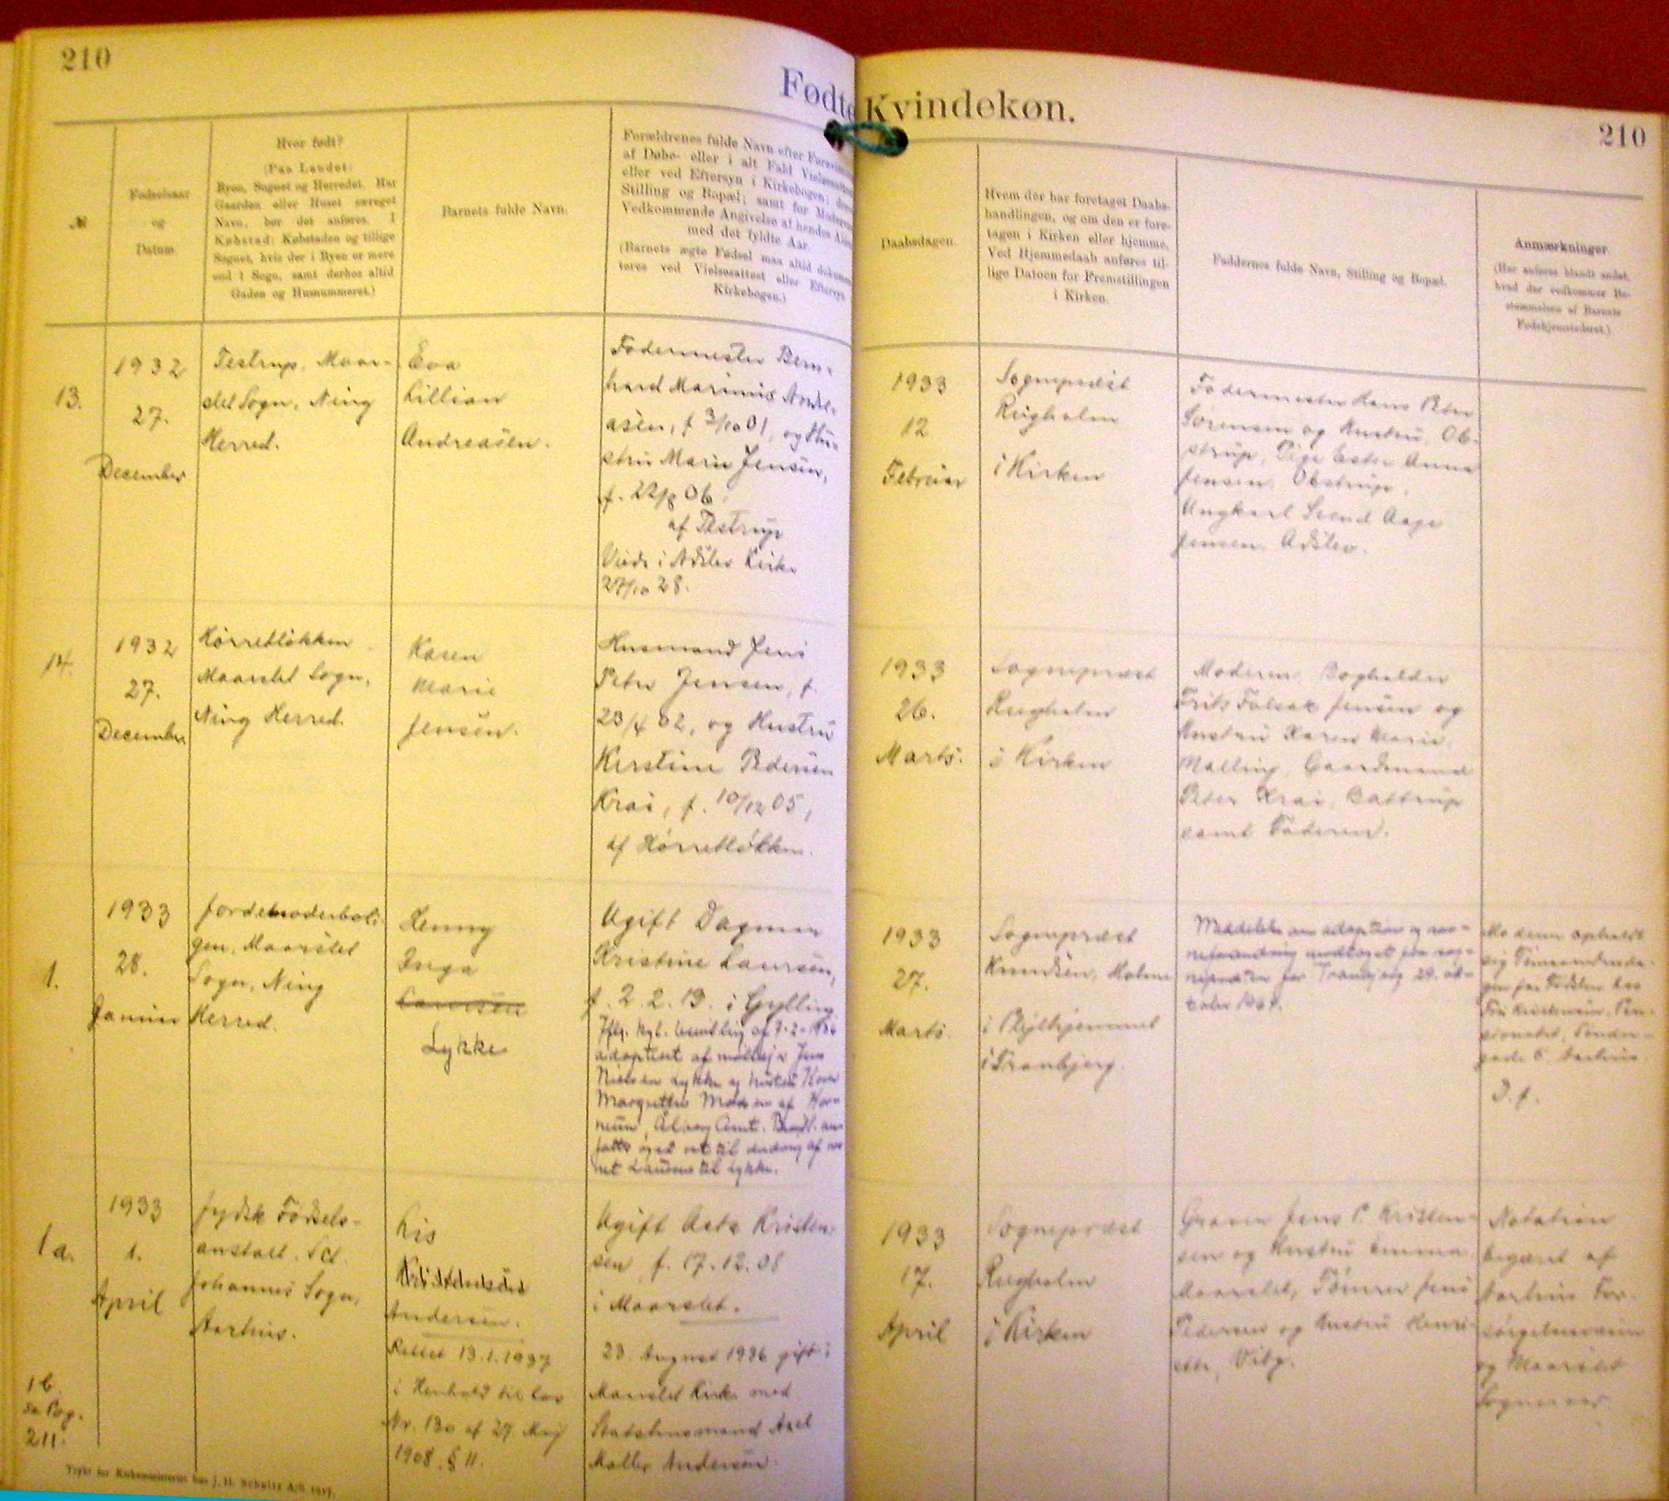 210
Fødte Kvindekøn.
210
№
Fødselsaar
og
Datum.
Hvor født?
(Paa Landet:
Byen, Sognet og Herredet. Har
Gaarden eller Huset særeget
Navn, bør det anføres. I
Købstad: Købstaden og tillige
Sognet, hvis der i Byen er mere
end 1 Sogn, samt derhos altid
Gaden og Husnummeret.)
Barnets fulde Navn.
Forældrenes fulde Navn efter
af Døbe- eller i alt Fald
eller ved Eftersyn i Kirkebogen;
Stilling og Bopæl; samt for
Vedkommende Angivelse af hendes
med det fyldte Aar.
(Barnets ægte Fødsel maa altid
teres ved Vielsesattest eller Eftersyn
Kirkebogen.)
Daabsdagen.
Hvem der har foretaget Daabs-
handlingen, og om den er fore-
tagen i Kirken eller hjemme.
Ved Hjemmedaab anføres til-
lige Datoen for Fremstillingen
i Kirken.
Faddernes fulde Navn, Stilling og Bopæl.
Anmærkninger.
(Her anføres blandt andet,
hvad der vedkommer Be-
stemmelsen af Barnets
Fødehjemstedsret.)
13.
1932
27.
December
Testrup, Maar-
slet Sogn, Ning
Herred.
Eva
Lillian
Andreasen.
Fodermester Bern-
hard Marinus Andre-
asen, f. 3/10 01, og Hu-
stru Marie Jensen,
f. 22/8 06.
af Testrup
Viede i Adslev Kirke
27/10 28.
1933
12
Februar
Sognepræst
Rugholm
i Kirken
Fodermester Hans Peter
Sørensen og Hustru, Ob-
strup, Pige Ester Anna
Jensen, Obstrup,
Ungkarl Svend Aage
Jensen, Adslev.
14.
1932
27.
December
Hørretløkken
Maarslet Sogn,
Ning Herred.
Karen
Marie
Jensen.
Husmand Jens
Peter Jensen, f.
23/4 02, og Hustru
Kirstine Pedersen
Krai, f. 10/12 05,
af Hørretløkken.
1933
26.
Marts.
Sognepræst
Rugholm
i Kirken
Moderen, Bogholder
Frits Jensen og
Hustru Karen Marie
Malling, Gaardmand
Peter Krai, Battrup
samt Faderen.
1.
1933
28.
Januar
Jordemoderboli-
gen, Maarslet
Sogn, Ning
Herred.
Henny
Inga
Laursen
Lykke
Ugift Dagmar
Kristine Laursen,
f. 2. 2. 13. i Gylling
adopteret af Jens
Nielsen Lykke og hustru Karen
Margrethe Madsen af
Ålborg Amt.
til ændring af
Laursen til Lykke.
1933
27.
Marts.
Sognepræst
Knudsen, Holme
i Plejehjemmet
i Tranbjerg.
Meddelelse om adoption og nav-
neforandring modtaget fra sog-
nepræsten for Tranbjerg 29. ok-
tober 1964.
Moderen opholdt
sig
gen før Fødslen hos
Aarhus
D. f.
1a.
1933
1.
April
Jydsk Fødsels-
anstalt. Sct.
Johannes Sogn,
Aarhus.
Lis
Kristensen
Andersen.
Rettet 13.1.1937
i Henhold til Lov
Nr. 130 af 27. Maj
1908, § 11.
Ugift Asta Kristen-
sen, f. 17.12.08
i Maarslet.
23. August 1936 gift i
Maarslet Kirke med
Statshusmand Axel
Møller Andersen.
1933
17.
April
Sognepræst
Rugholm
i Kirken
Graver Jens P. Kristen-
sen og Hustru Emma
Maarslet, Tømrer Jens
Pedersen og Hustru Henri-
ette, Viby.
Notation
begæret af
Aarhus For-
sørgelsesvæsen
og Maarslet
Sogneraad
1b
se Pag.
211.
Trykt for Kirkeministeriet hos J. H. Schultz A/S